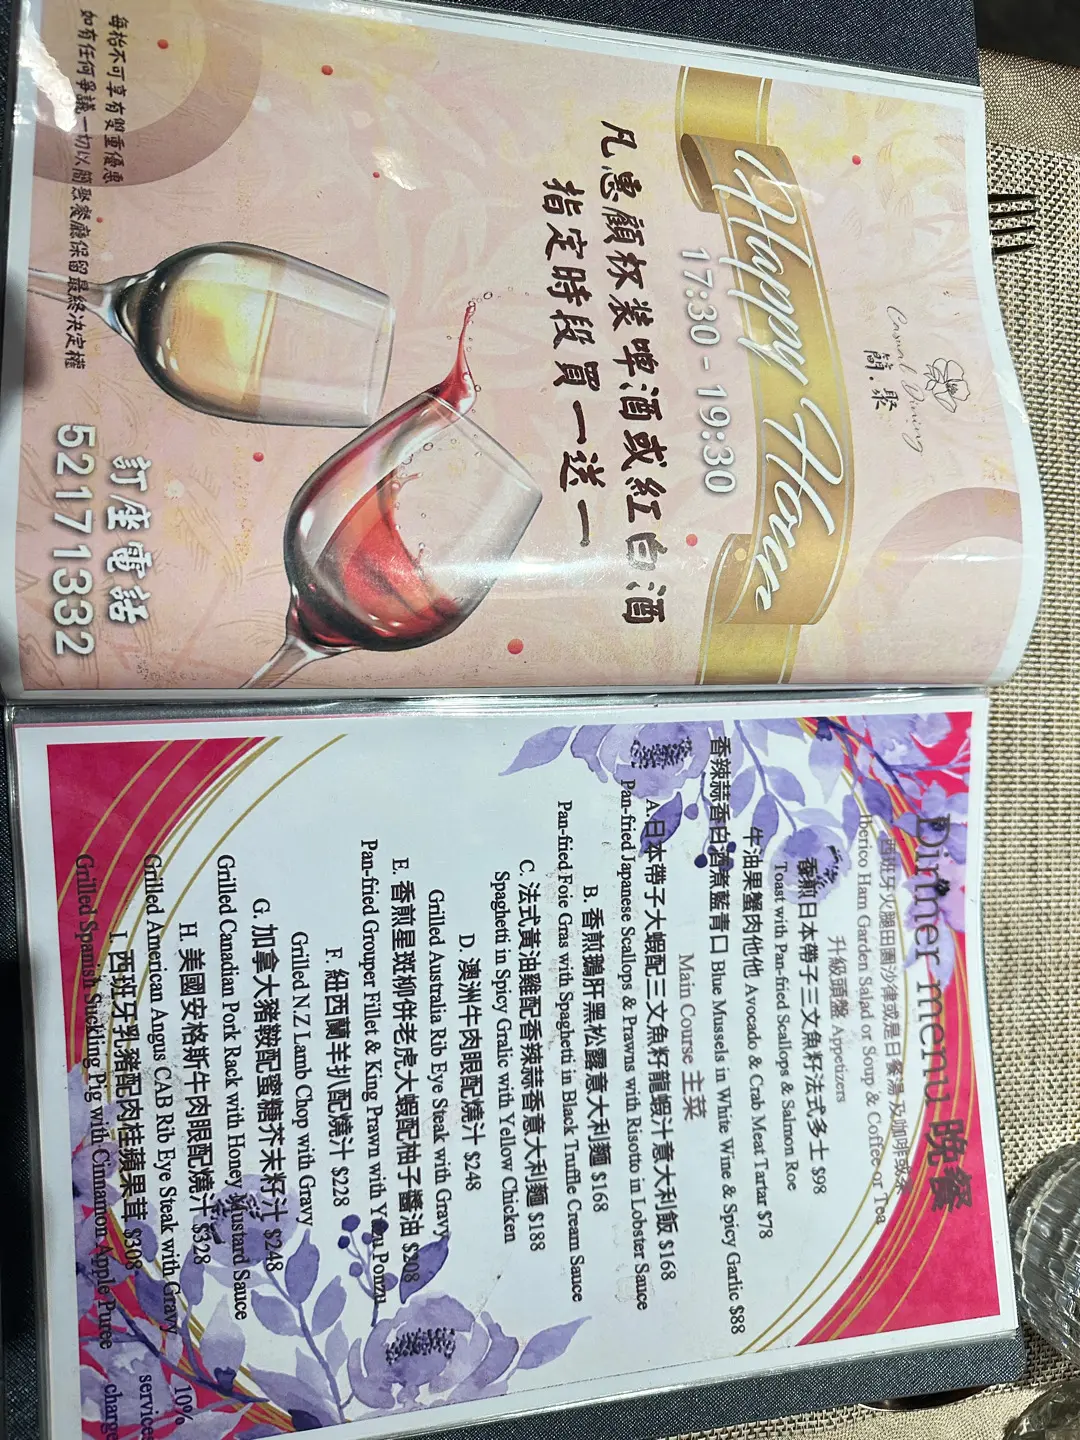 Casual Dining
簡.聚
Happy Hour
17:30 - 19:30
凡惠顧杯裝啤酒或紅白酒
指定時段買一送一
訂座電話
52171332
每枱不可享有雙重優惠
如有任何爭議一切以簡聚餐廳保留最終決定權
Dinner menu 晚餐
西班牙火腿田園沙律或是日餐湯及咖啡或茶
Iberico Ham Garden Salad or Soup & Coffee or Tea
升級頭盤 Appetizers
香煎日本帶子三文魚籽法式多士 $98
Toast with Pan-fried Scallops & Salmon Roe
牛油果蟹肉他他 Avocado & Crab Meat Tartar $78
香辣蒜香白酒煮藍青口 Blue Mussels in White Wine & Spicy Garlic $88
Main Course 主菜
A.日本帶子大蝦配三文魚籽龍蝦汁意大利飯 $168
Pan-fried Japanese Scallops & Prawns with Risotto in Lobster Sauce
B. 香煎鵝肝黑松露意大利麵 $168
Pan-fried Foie Gras with Spaghetti in Black Truffle Cream Sauce
C. 法式黃油雞配香辣蒜香意大利麵 $188
Spaghetti in Spicy Gralic with Yellow Chicken
D. 澳洲牛肉眼配燒汁 $248
Grilled Australia Rib Eye Steak with Gravy
E. 香煎星斑柳併老虎大蝦配柚子醬油 $208
Pan-fried Grouper Fillet & King Prawn with Yuzu Ponzu
F. 紐西蘭羊扒配燒汁 $228
Grilled N.Z Lamb Chop with Gravy
G. 加拿大豬鞍配蜜糖芥末籽汁 $248
Grilled Canadian Pork Rack with Honey Mustard Sauce
H. 美國安格斯牛肉眼配燒汁 $328
Grilled American Angus CAB Rib Eye Steak with Gravy
I. 西班牙乳豬配肉桂蘋果茸 $308
Grilled Spanish Suckling Pig with Cinnamon Apple Puree
10%
services
charge